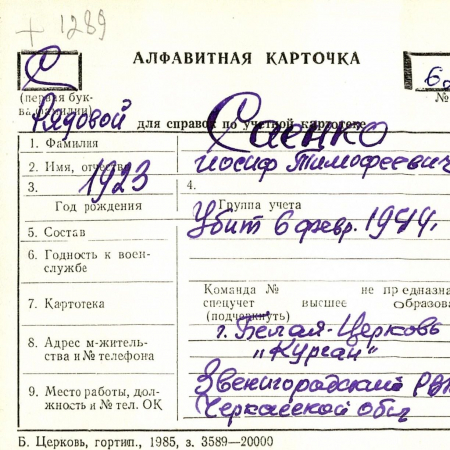 + 1289
С
АЛФАВИТНАЯ КАРТОЧКА
(первая бук-
ва фамилии)
№
Рядовой для справок по учетной картотеке
1. Фамилия Саенко
2. Имя, отчество Иосиф Тимофеевич
3. 1923 4.
Год рождения Группа учета
5. Состав Убит 6 февр. 1944.
6. Годность к воен-
службе
Команда № не предназна
7. Картотека спецучет высшее образова
(подчеркнуть)
г. Белая-Церковь
8. Адрес м-житель-
ства и № телефона "Курган"
9. Место работы, дол-
жность и № тел. ОК
Звенигородский РВК
Черкасской обл
Б. Церковь, гортип., 1985, з. 3589—20000